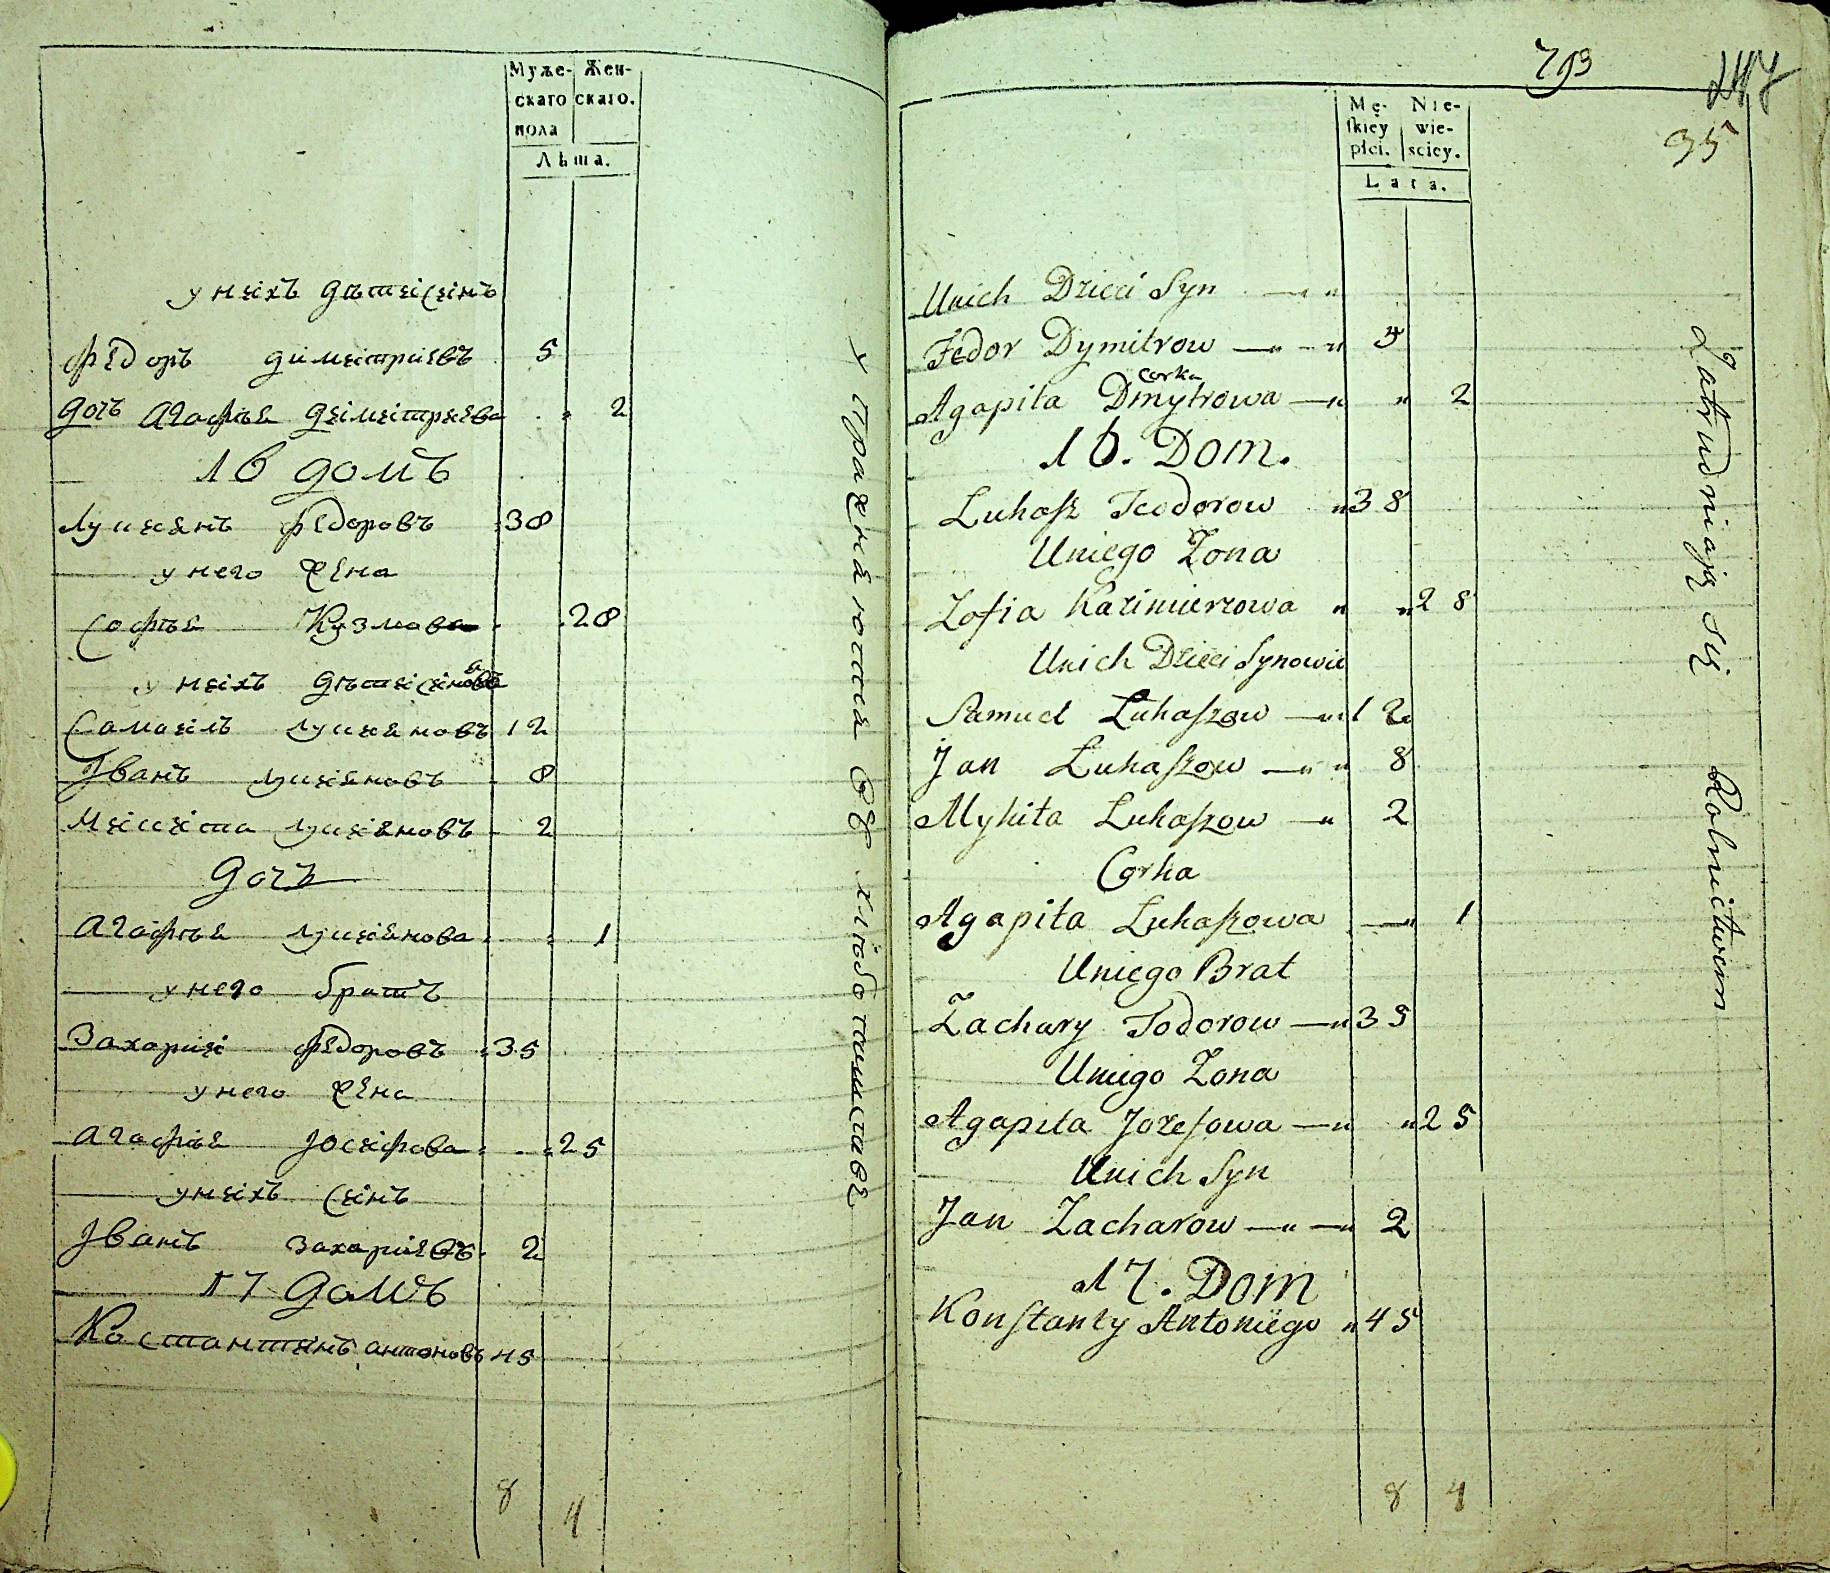 Муже- Жен-
скаго скаго.
пола
Лѣта.
у нихъ дѣти синъ
Федоръ димитриевъ 5
дочъ Агафия димитриева 2
16 домъ
Лукиянъ федоровъ 38
у него жена
София Кузмова 28
у нихъ дѣти синовя
Самоилъ лукияновъ 12
Иванъ лукияновъ 8
Микита лукияновъ 2
дочъ
Агафия лукиянова 1
у него братъ
Захарии федоровъ 35
у него жена
Агафия Иосифова 25
у нихъ синъ
Иванъ захариевъ 2
17 домъ
Костантинъ антоновъ 45
8 4
793
35
Mę- Nie-
ſkiey wie-
płci. sciey.
Lata.
Unich Dzieci Syn
Fedor Dymitrow 5
Corka
Agapita Dmytrowa 2
16. Dom.
Lukaſz Teodorow 38
Uniego Zona
Zofia Kazimierzowa 28
Unich Dzieci Synowie
Samuel Lukaſzow 12
Jan Lukaſzow 8
Mykita Lukaſzow 2
Corka
Agapita Lukaſzowa 1
Uniego Brat
Zachary Todorow 35
Uniego Zona
Agapita Jozefowa 25
Unich Syn
Jan Zacharow 2
17. Dom
Konſtanty Antoniego 45
8 4
Zatrudniaią się Rolnictwem